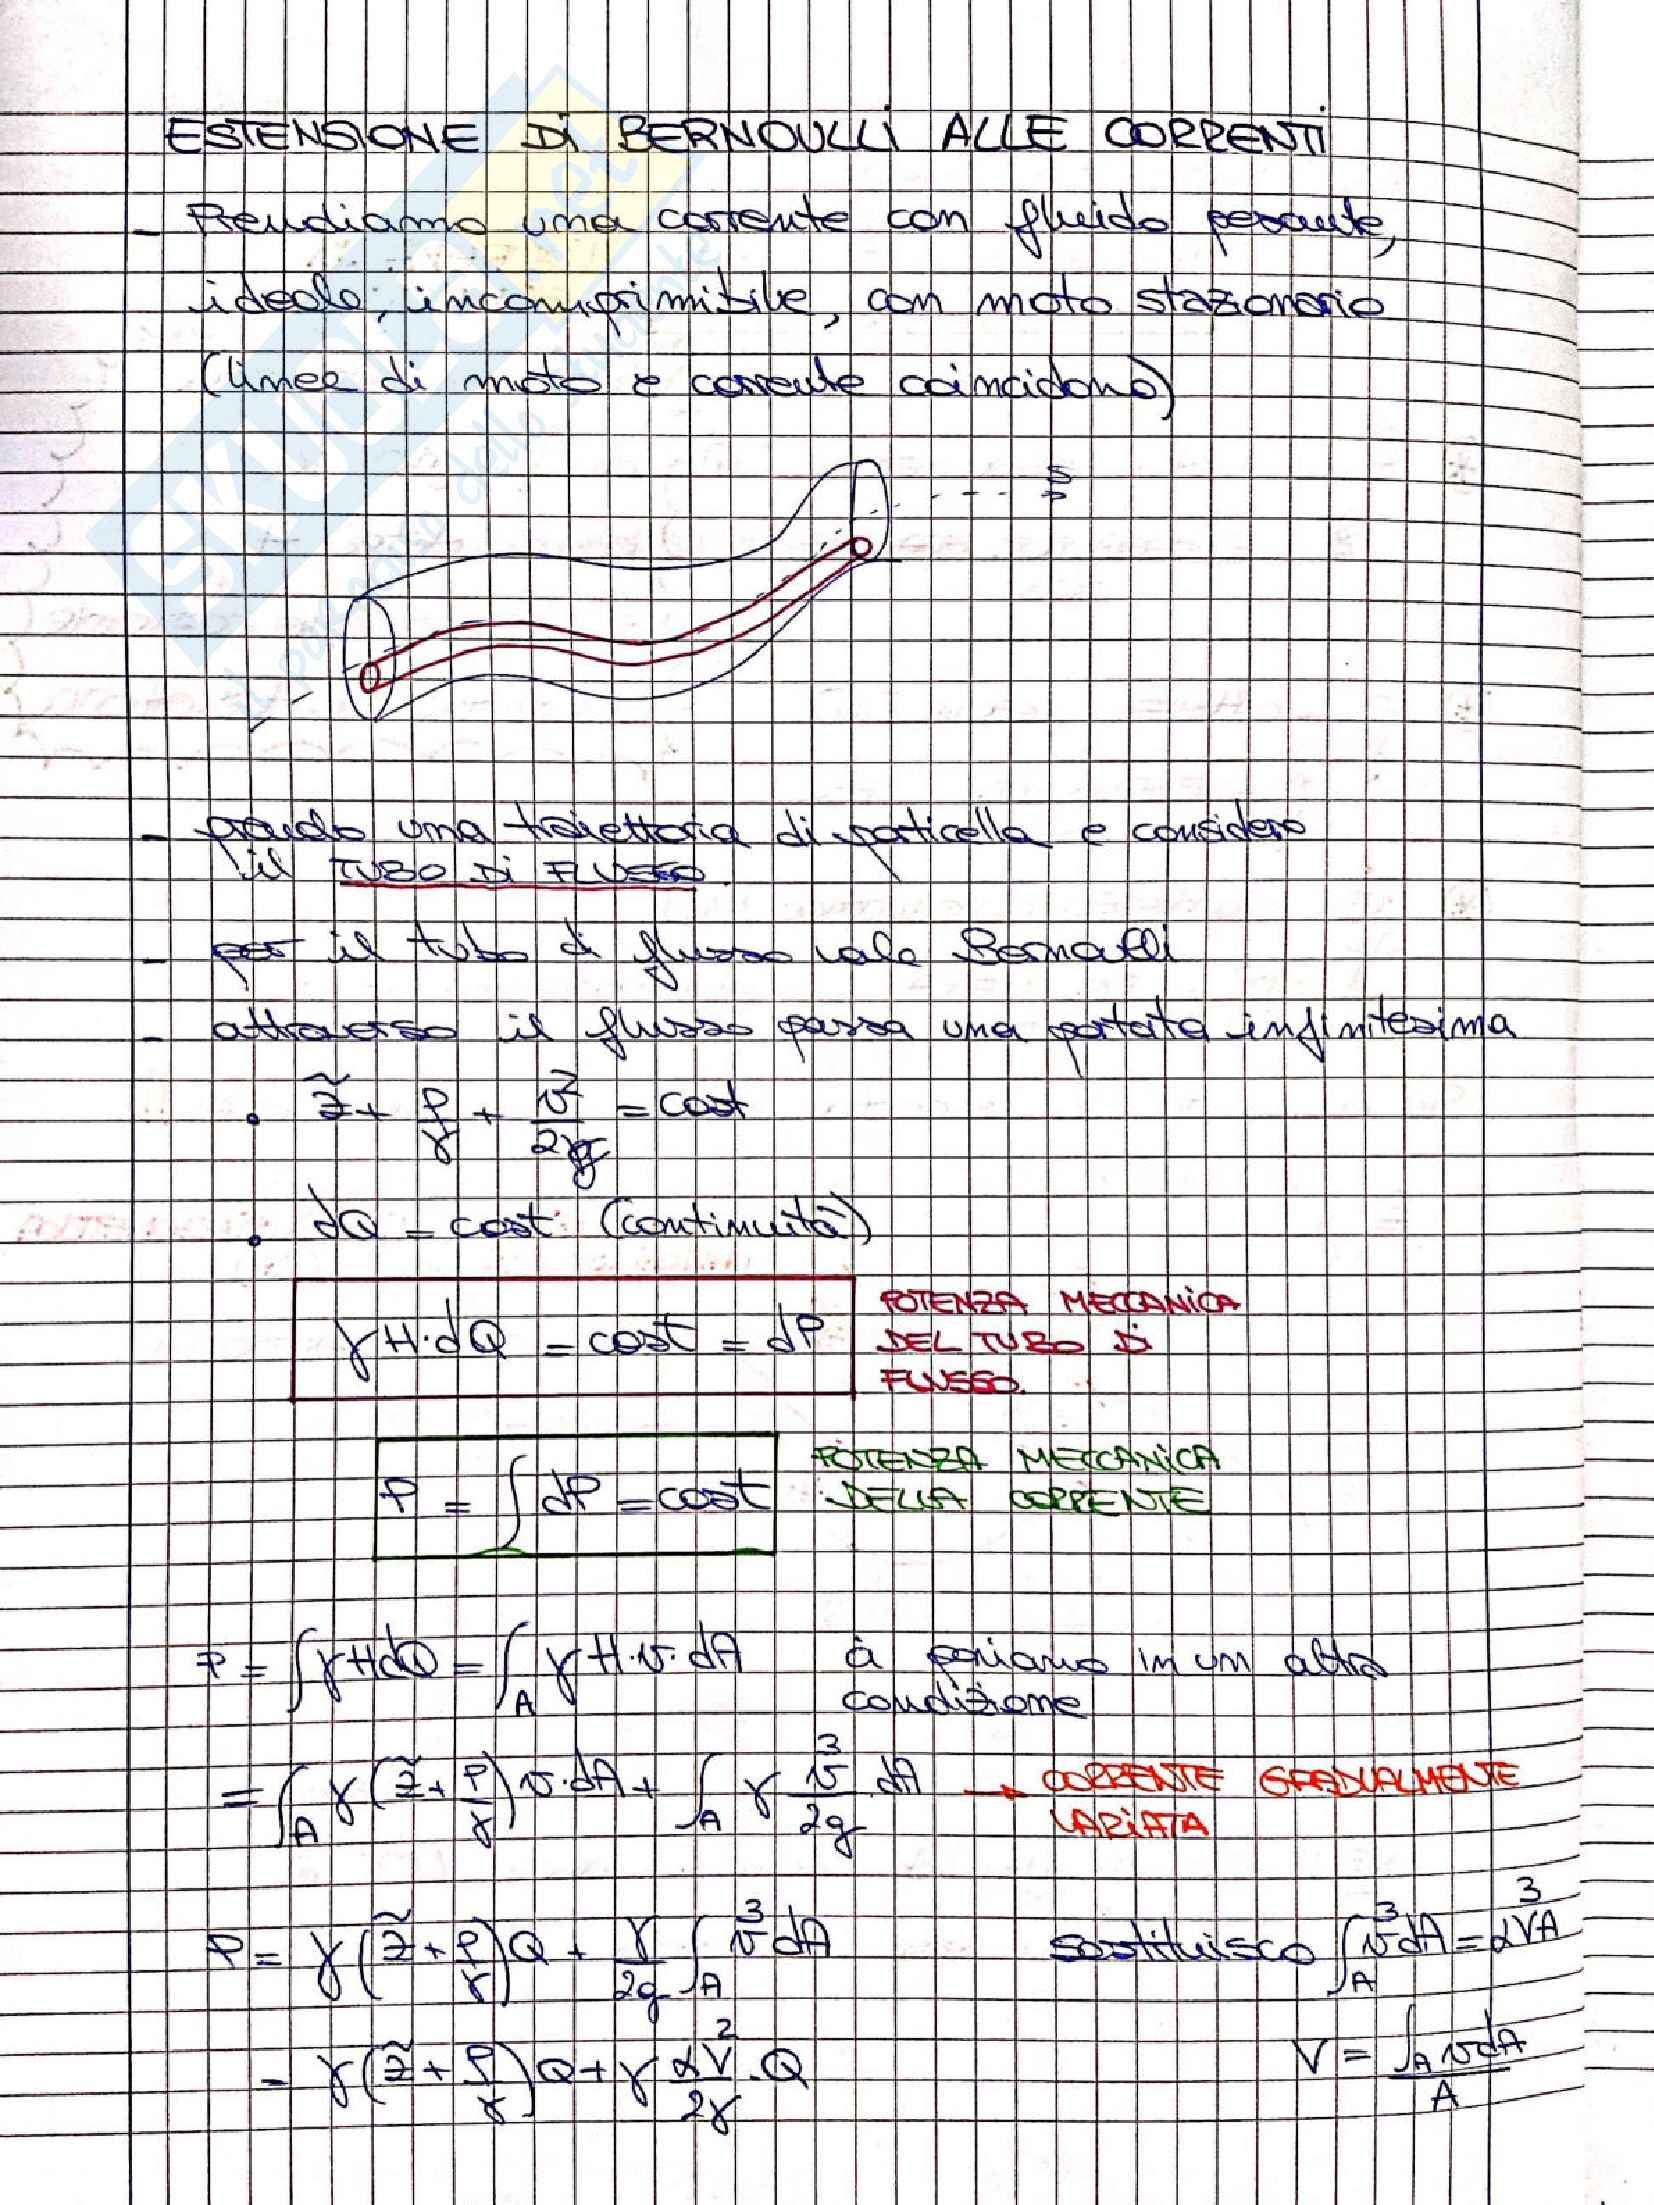 ESTENSIONE Di BERNOULLi ALLE CORRENTi
- Prendiamo una corrente con fluido pesante,
ideale, incomprimibile, con moto stazionario
(linee di moto e corrente coincidono)
- prendo una traiettoria di particella e considero
il TUBO Di FLUSSO
- per il tubo di flusso vale Bernoulli
- attraverso il flusso passa una portata infinitesima
• z̃ + p/γ + v²/2g = cost
• dQ = cost (continuità)
γH·dQ = cost = dP
POTENZA MECCANiCA
DEL TUBO Di
FLUSSO.
P = ∫ dP = cost
POTENZA MECCANiCA
DELLA CORRENTE
P = ∫ γHdQ = ∫_A γH·v·dA ci poniamo in un altra
condizione
= ∫_A γ(z̃ + p/γ) v·dA + ∫_A γ v³/2g dA → CORRENTE GRADUALMENTE
VARiATA
P = γ(z̃ + p/γ)Q + γ/2g ∫_A v³dA sostituisco ∫_A v³dA = αV³A
= γ(z̃ + p/γ)Q + γ αV²/2γ · Q V = ∫_A vdA / A
SKUOLA.net
il portale dello studente